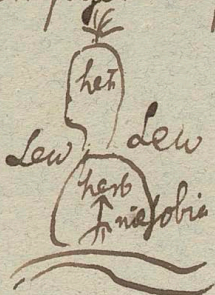 heł
Lew Lew
herb
niesobia